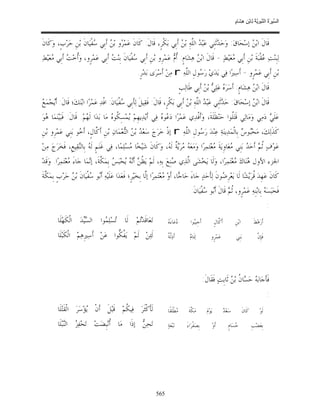 السيرة النبوية لابن هشام
قَالَ ابْنُ إسْحَاقَ: وَحَدَّثَنِي عَبْدُ اللَّهِ بْنُ أَبِي بَكْرٍ، قَالَ: كَانَ عَمْرُو بْنُ أَبِي سُفْيَانَ بْنِ حَرْبٍ، وَكَانَ
لِبِنْتِ عُقْبَةَ بْنِ أَبِي مُعَيْطٍ - قَالَ ابْنُ هِشَامٍ: أُمُّ عَمْرِو بْنِ أَبِي سُفْيَانَ بِنْتُ أَبِي عَمْرٍو، وَأُخْتُ أَبِي مُعَيْطِ
بْنِ أَبِي عَمْرٍو - أَسِيرًا فِي يَدَيْ رَسُولِ اللَّهِ ﷺ مِنْ أَسْرَى بَدْرٍ.
قَالَ ابْنُ هِشَامٍ: أَسَرَهُ عَلِيُّ بْنُ أَبِي طَالِبٍ
قَالَ ابْنُ إسْحَاقَ: حَدَّثَنِي عَبْدُ اللَّهِ بْنُ أَبِي بَكْرٍ، قَالَ: فَقِيلَ لِأَبِي سُفْيَانَ: افْدِ عَمْرًا ابْنَكَ؛ قَالَ: أَيُجْمَعُ
عَلَيَّ دَمِي وَمَالِي قَتَلُوا حَنْظَلَةَ، وَأَفْدِي عَمْرًا دَعُوهُ فِي أَيْدِيهِمْ يُمْسِكُوهُ مَا بَدَا لَهُمْ. قَالَ: فَبَيْنَمَا هُوَ
كَذَلِكَ، مَحْبُوسٌ بِالْمَدِينَةِ عِنْدَ رَسُولِ اللَّهِ ﷺ إذْ خَرَجَ سَعْدُ بْنُ النُّعْمَانِ بْنِ أَكَّالٍ، أَخُو بَنِي عَمْرِو بْنِ
عَوْفٍ ثُمَّ أَحَدُ بَنِي مُعَاوِيَةَ مُعْتَمِرًا وَمَعَهُ مُرَيَّةٌ لَهُ، وَكَانَ شَيْخًا مُسْلِمًا، فِي غَنَمٍ لَهُ بِالنَّقِيعِ، فَخَرَجَ مِنْ
الجزء الأول هُنَالِكَ مُعْتَمِرًا، وَلَا يَخْشَى الَّذِي صُنِعَ بِهِ، لَمْ يَظُنَّ أَنَّهُ يُحْبَسُ بِمَكَّةَ، إنَّمَا جَاءَ مُعْتَمِرًا. وَقَدْ
كَانَ عَهِدَ قُرَيْشًا لَا يَعْرِضُونَ لِأَحَدٍ جَاءَ حَاجًّا، أَوْ مُعْتَمِرًا إلَّا بِخَيْرٍ؛ فَعَدَا عَلَيْهِ أَبُو سُفْيَانَ بْنُ حَرْبٍ بِمَكَّةَ
فَحَبَسَهُ بِابْنِهِ عَمْرٍو، ثُمَّ قَالَ أَبُو سُفْيَانَ:
أَرَهْطَ ابْنِ أَكَّالٍ أَجِيبُوا دُعَاءَهُ تَعَاقَدْتُمْ لَا تُسْلِمُوا السَّيِّدَ الْكَهْلَا
فَإِنَّ بَنِي عَمْرٍو لِئَامٌ أَذِلَّةٌ لَئِنْ لَمْ يَفُكُّوا عَنْ أَسِيرِهِمْ الْكَبْلَا
فَأَجَابَهُ حَسَّانُ بْنُ ثَابِتٍ فَقَالَ:
لَوْ كَانَ سَعْدٌ يَوْمَ مَكَّةَ مُطْلَقًا لَأَكْثَرَ فِيكُمْ قَبْلَ أَنْ يُؤْسَرَ الْقَتْلَا
بِعَضْبٍ حُسَامٍ أَوْ بِصَفْرَاءَ نَبْعَةٍ تَحِنُّ إذَا مَا أُنْبِضَتْ تَحْفِزُ النَّبْلَا
565